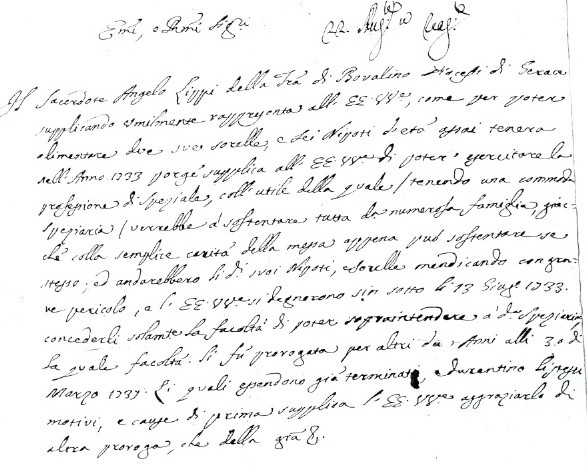 Emi, e Rmi Sig.ri
Il Sacerdote Angelo Lippi della Trã di Bovalino Diocesi di Gerace
supplicando umilmente rappresenta all' EE. VV.e, come per poter
alimentare due sue sorelle, e sei Nipoti d'età assai tenera
nell'Anno 1733 porse supplica all' EE. VV.e di poter esercitare la
professione di Speziale, coll'utile della quale (tenendo una commoda
speziaria) verrebbe à sostentare tutta la numerosa famiglia, giac-
chè colla semplice carità della messa appena può sostentare se
stesso; ed andarebbero li di suoi Nipoti, e Sorelle mendicando con gra-
ve pericolo, e l' EE. VV.e si degnorono sin sotto li 13 Giug.o 1733.
concederli solamte la facoltà di poter sopraintendere à d.a Speziaria,
la quale facoltà li fù prorogata per altri due Anni alli 30 di
Marzo 1737. Li quali essendono già terminati, e durantino li stessi
motivi, e cause di prima supplica l' EE. VV.e aggraziarlo di
altra proroga, che della grã &.